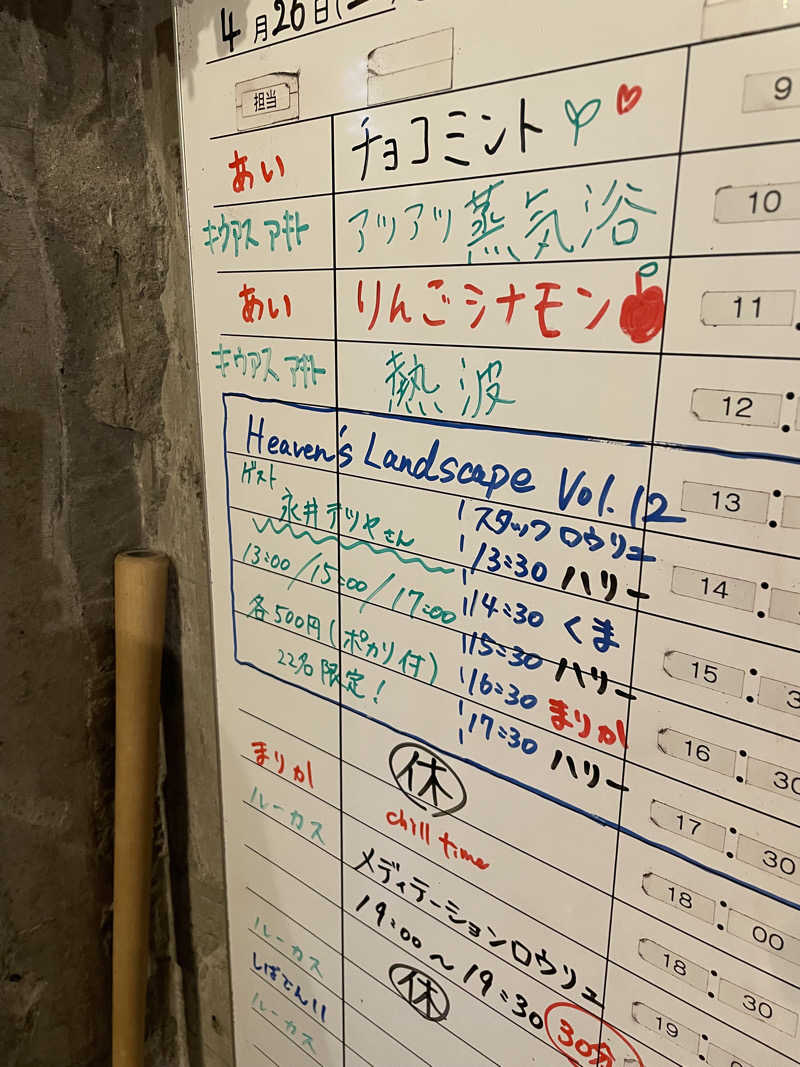 4月26日(
担当
あい チョコミント 9
キウアス アキト アツアツ蒸気浴 10
あい りんごシナモン 11:
キウアス アキト 熱波 12:
Heaven's Landscape Vol.12 13:
ゲスト
永井テツヤさん
13:00/15:00/17:00
各500円(ポカリ付)
22名限定!
スタッフロウリュ
13:30 ハリー 14:
14:30 くま
15:30 ハリー 15:3
16:30 まりか 16:30
17:30 ハリー
17:30
まりか 休 18:00
chill time
ルーカス メディテーションロウリュ 18:30
19:00～19:30 30分 19:
ルーカス 休
しばてん11
ルーカス